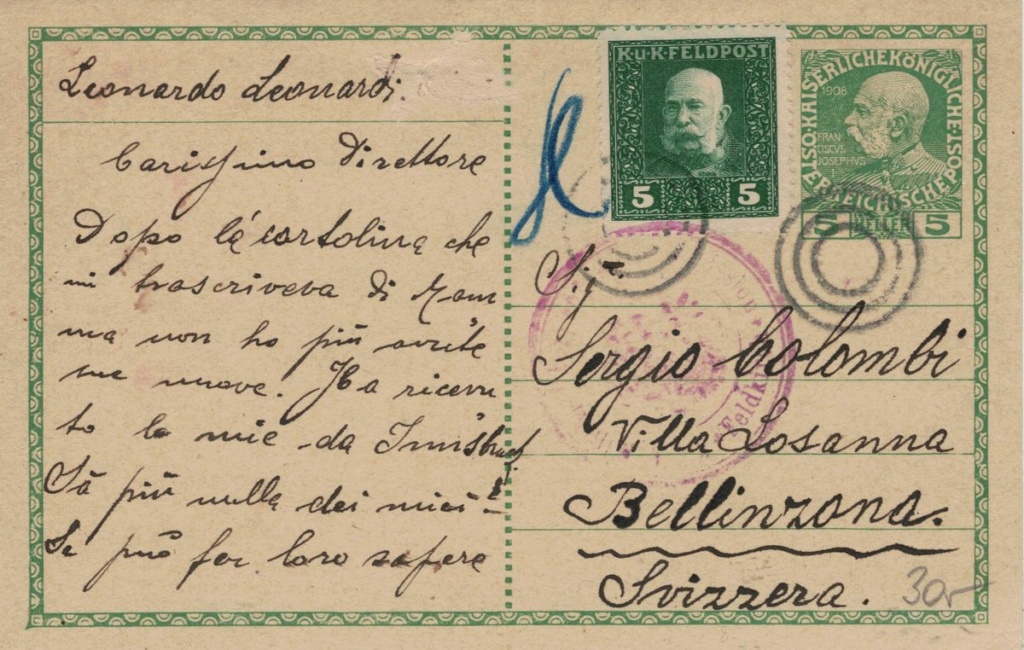 Leonardo Leonardi.
Carissimo Direttore
Dopo la cartolina che
mi trascriveva di Mam
ma non ho più avute
sue nuove. Ha ricevu
to le mie da Innsbruck?
Sà più nulla dei miei?
Se può far loro sapere
K.u.K. FELDPOST
5 5
KAISERLICHE KÖNIGLICHE
ÖSTERREICHISCHE POST
1908
FRAN
CISCVS
JOSEPHVS
5 HELLER 5
Feldk
Sig.
Sergio Colombi
Villa Losanna
Bellinzona.
Svizzera.
30.-